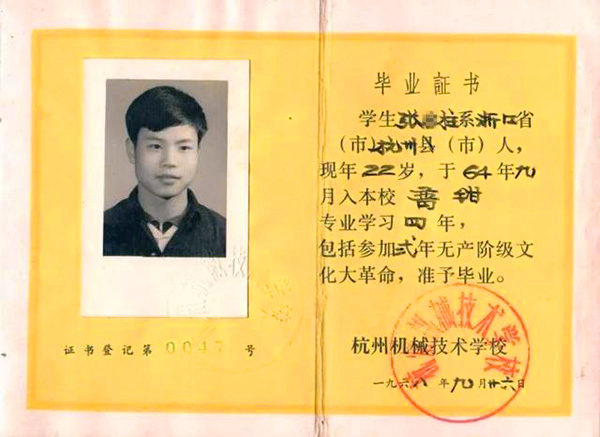 毕业証书
学生张 柱系浙江省
(市)杭州县(市)人，
现年22岁，于64年九
月入本校
专业学习四年，
包括参加弍年无产阶级文
化大革命，准予毕业。
杭州机械技术学校
一九六八年九月廿六日
证书登记第0047号
机械技术学校